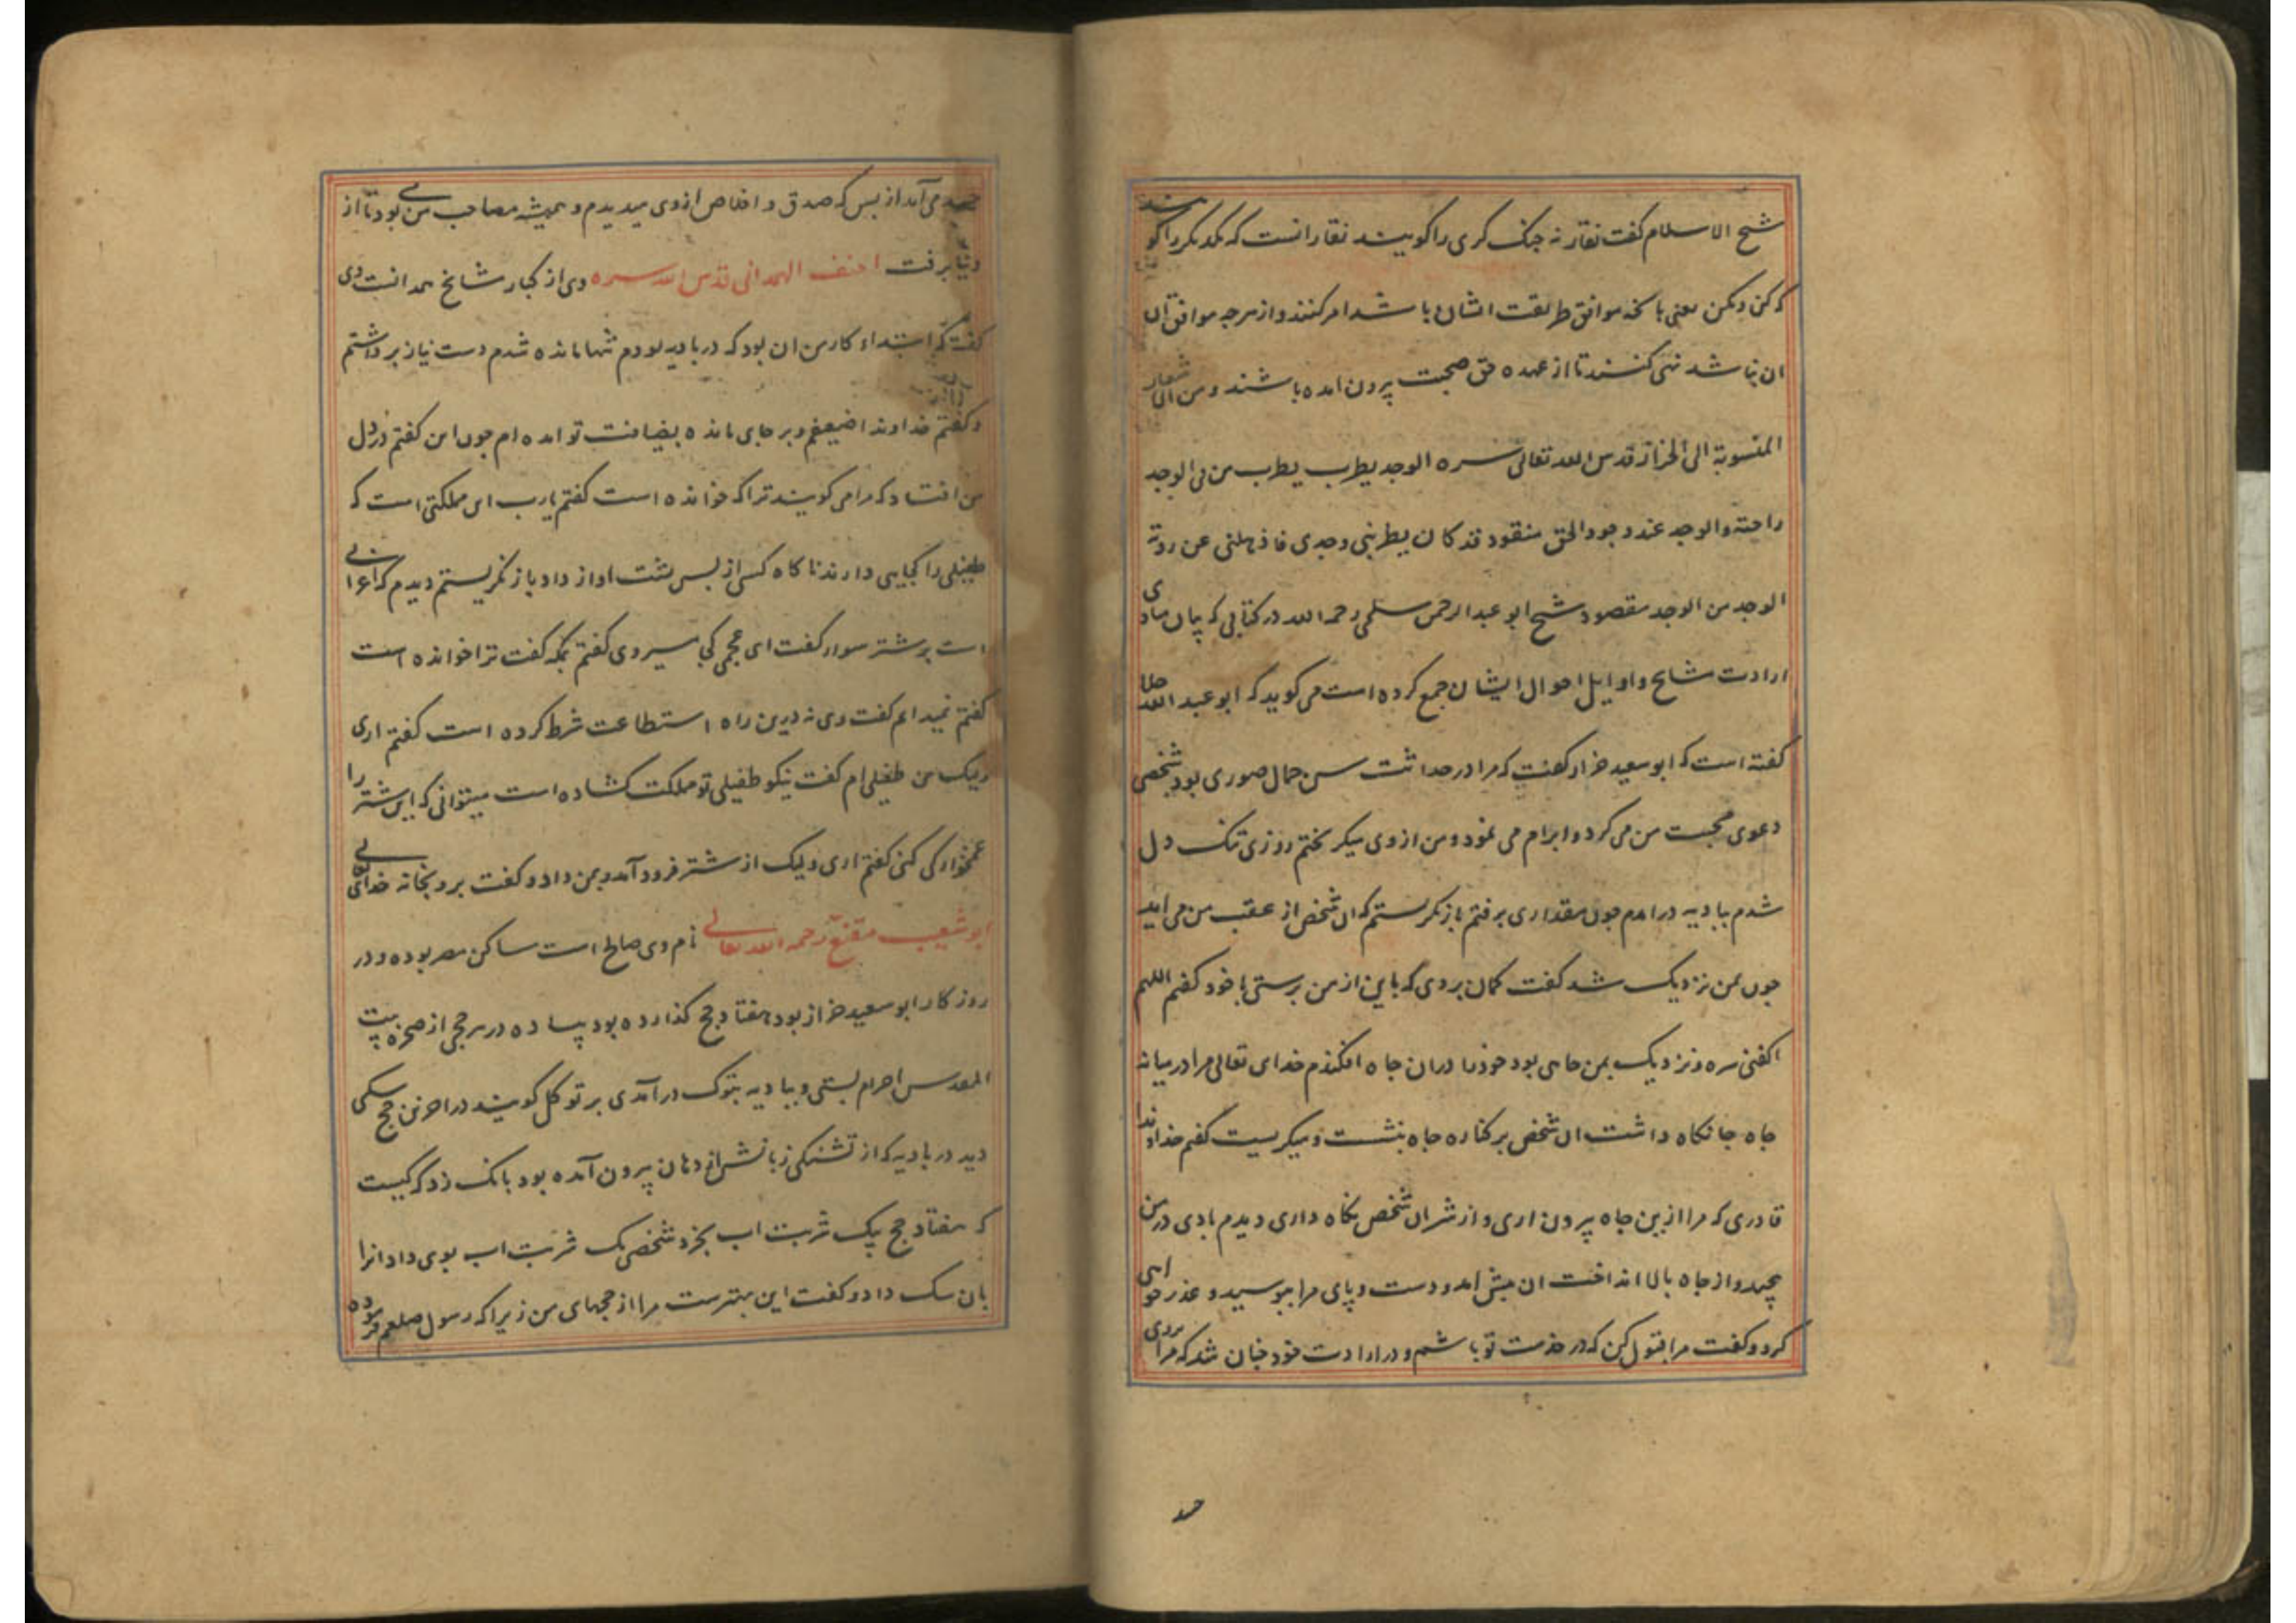 شیخ الاسلام کفت نقار نه جنک کری را کویند نقار انست که یکدیکر را کویند
که کن و مکن یعنی بانچه موافق طریقت ایشان باشد امر کنند و از هرچه موافق
ان نباشد نهی کنند تا از عهده حق صحبت بیرون امده باشند و من اشعار
المنسوبة الی الخراز قدس الله تعالی سره الوجد یطرب من فی الوجد
راحته والوجد عند وجود الحق مفقود قد کان یطربنی وجدی فاذهلنی عن رویة
الوجد من الوجد مقصود شیخ ابو عبد الرحمن سلمی رحمه الله در کتابی که بیان مبادی
ارادت مشایخ و اوایل احوال ایشان جمع کرده است می کوید که ابو عبد الله جلا
کفته است که ابو سعید خراز کفت که مرا در حداثت سن جمال صوری بود شخصی
دعوی محبت من می کرد و ابرام می نمود و من از وی میکریختم روزی تنک دل
شدم ببادیه درامدم چون مقداری برفتم باز نکرستم که ان شخص از عقب من می اید
چون بمن نزدیک شد کفت کمان بردی که باین از من برستی با خود کفتم اللهم
اکفنی شره و نزدیک بمن چاهی بود خود را دران چاه افکندم خدای تعالی مرا در میانه
چاه جا نکاه داشت ان شخص بر کناره چاه بنشست و میکریست کفتم خداوندا
قادری که مرا ازین چاه بیرون اری و از شر ان شخص نکاه داری دیدم بادی در من
پیچید و از چاه بالا انداخت ان پیش امد و دست و پای مرا ببوسید و عذر خواهی
کرد و کفت مرا قبول کن که در خدمت تو باشم و در ارادت خود چنان شد که مرا بروی
حسد
حسد می آمد از بس که صدق و اخلاص از وی میدیدم و همیشه مصاحب من بود تا از
دنیا برفت احنف الهمدانی قدس الله سره وی از کبار مشایخ همدانست وی
کفت که ابتداء کار من ان بود که در بادیه بودم تنها مانده شدم دست نیاز برداشتم
و کفتم خداوندا ضعیفم و بر جای مانده بضیافت تو امده ام چون این کفتم در دل
من افتاد که مرا می کویند ترا که خوانده است کفتم یارب این مملکتی است که
طفیلی را کنجایی دارند ناکاه کسی از پس پشت اواز داد باز نکریستم دیدم که اعرابی
است بر شتر سوار کفت ای عجمی کجا میروی کفتم بمکه کفت ترا خوانده است
کفتم نمیدانم کفت وی نه درین راه استطاعت شرط کرده است کفتم اری
ولیک من طفیلی ام کفت نیکو طفیلی تو مملکت کشاده است میتوانی که این شتر را
غمخوارکی کنی کفتم اری ولیک از شتر فرود آمد و بمن داد و کفت برو بخانه خدای تعالی
ابو شعیب مقنع رحمه الله تعالی نام وی صالح است ساکن مصر بوده و در
روزکار ابو سعید خراز بود هفتاد حج کذارده بود پیاده در هر حجی از صخره بیت
المقدس احرام بستی و ببادیه تبوک درآمدی بر توکل کویند در اخرین حج سکی
دید در بادیه که از تشنکی زبانش از دهان بیرون آمده بود بانک زد که کیست
که هفتاد حج بیک شربت اب بخرد شخصی یک شربت اب بوی داد انرا
بان سک داد و کفت این بهترست مرا از حجهای من زیرا که رسول صلعم فرموده